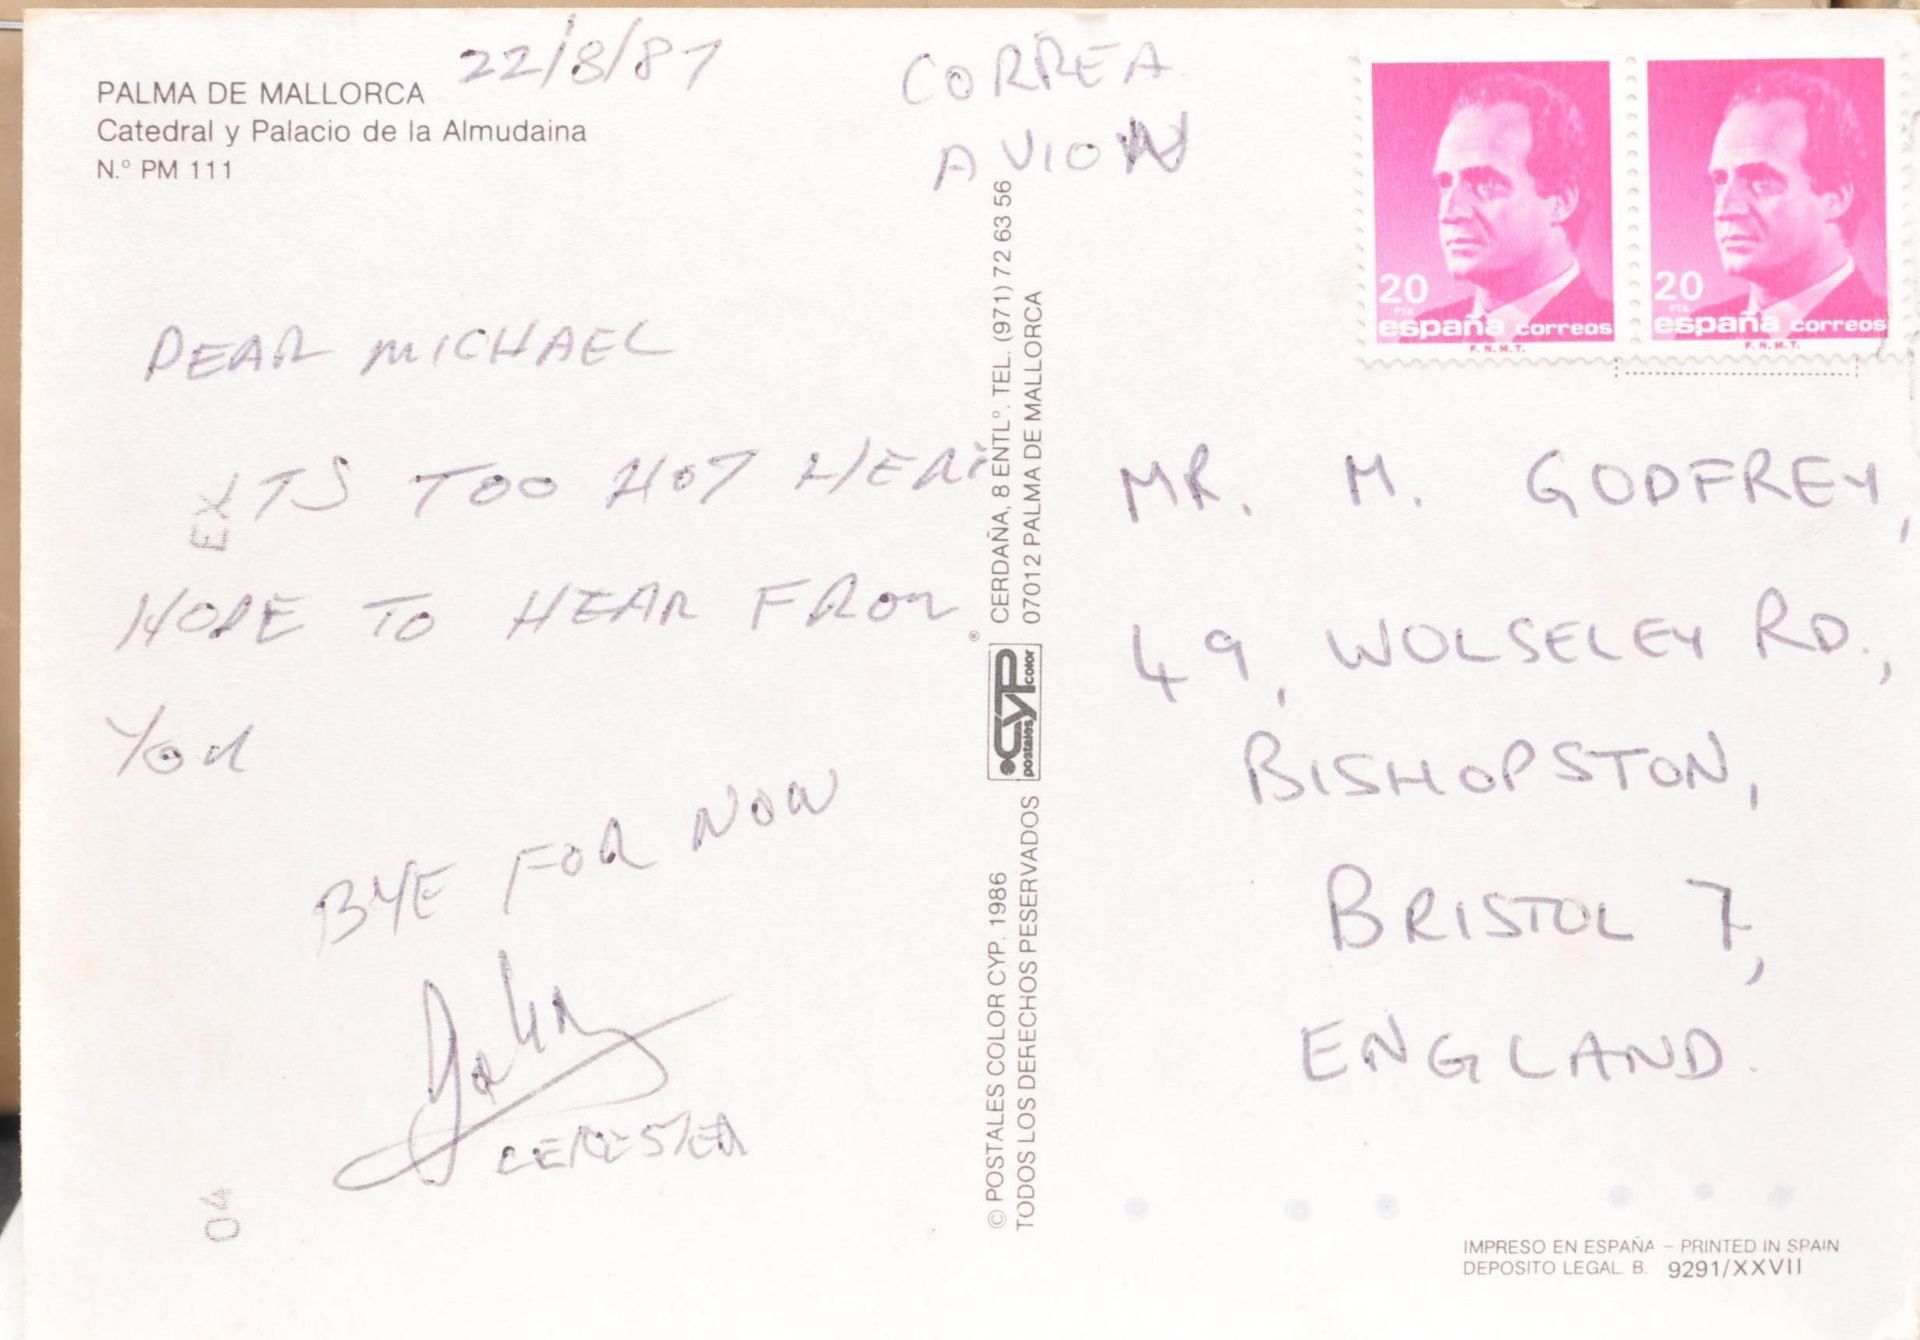 PALMA DE MALLORCA
Catedral y Palacio de la Almudaina
N.º PM 111
22/8/87
CORREA
AVION
DEAR MICHAEL
ITS TOO HOT HERE
HOPE TO HEAR FROM
YOU
BYE FOR NOW
John
EX
04
CERDAÑA, 8 ENTLº. TEL. (971) 72 63 56
07012 PALMA DE MALLORCA
®
CYP
postales color
© POSTALES COLOR CYP. 1986
TODOS LOS DERECHOS PESERVADOS
20
PTA
españa correos
F.N.M.T.
20
PTA
españa correos
F.N.M.T.
MR. M. GODFREY,
49, WOLSELEY RD.,
BISHOPSTON,
BRISTOL 7,
ENGLAND.
IMPRESO EN ESPAÑA – PRINTED IN SPAIN
DEPOSITO LEGAL B. 9291/XXVII